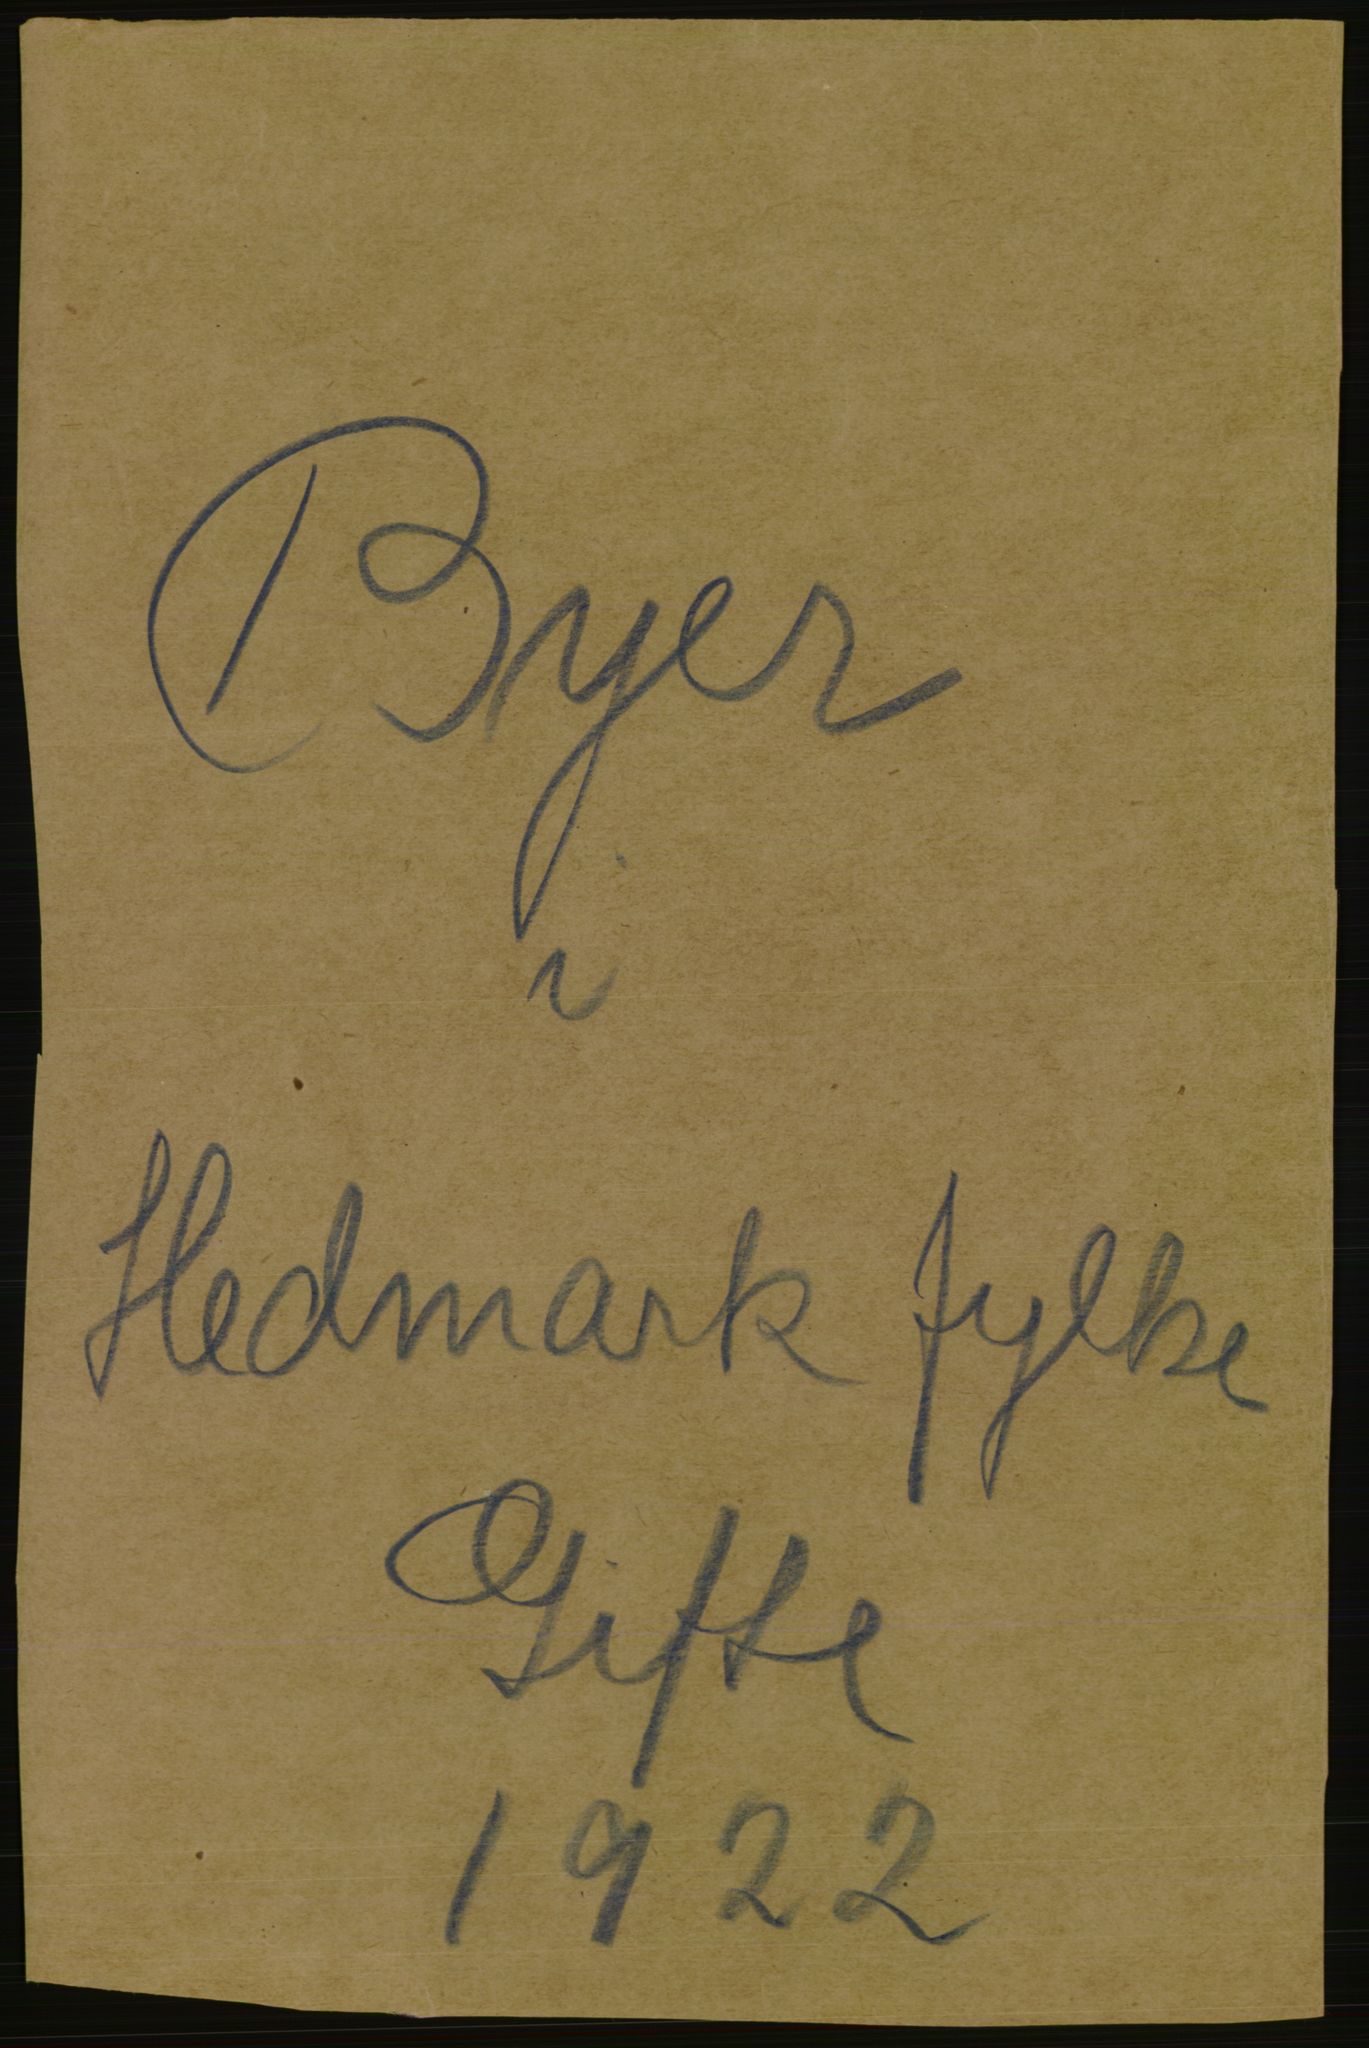 Byer
i
Hedmark fylke
Gifte
1922